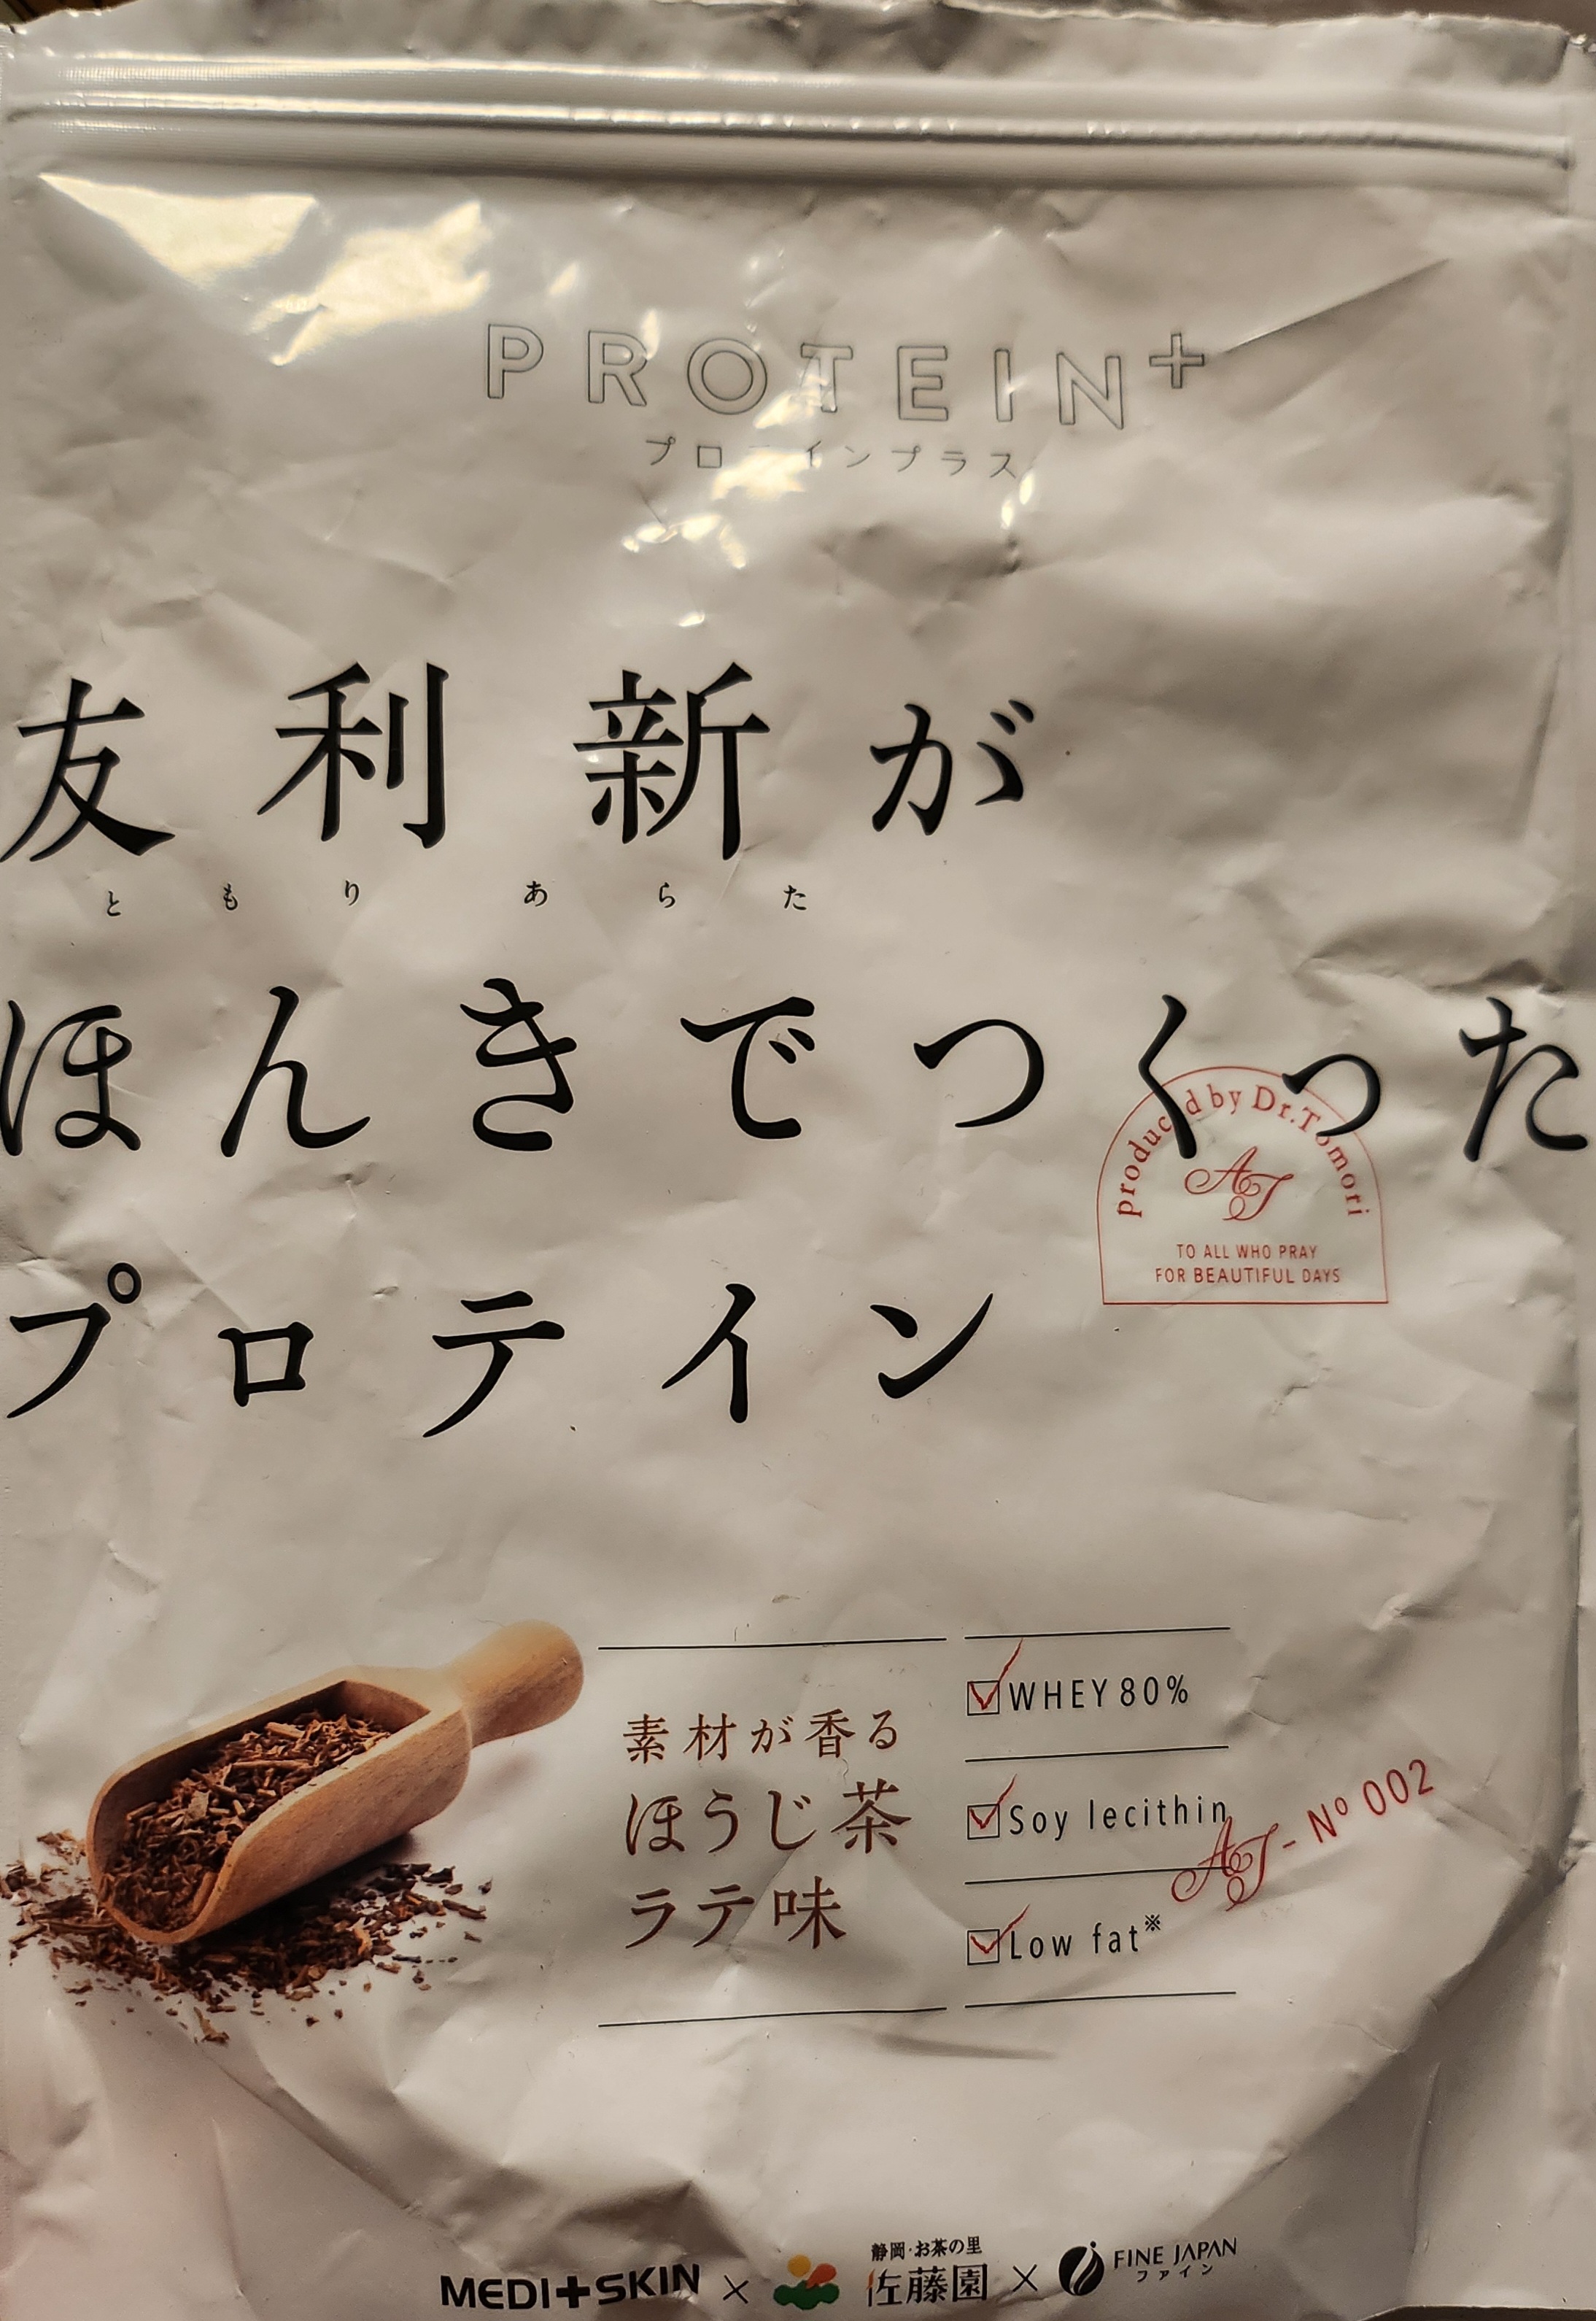 PROTEIN+
プロテインプラス
友利新が
ともりあらた
ほんきでつくった
プロテイン
produced by Dr.Tomori
AT
TO ALL WHO PRAY
FOR BEAUTIFUL DAYS
素材が香る
ほうじ茶
ラテ味
WHEY 80%
Soy lecithin
Low fat※
AT- Nº 002
MEDI+SKIN × 静岡・お茶の里 佐藤園 × FINE JAPAN ファイン